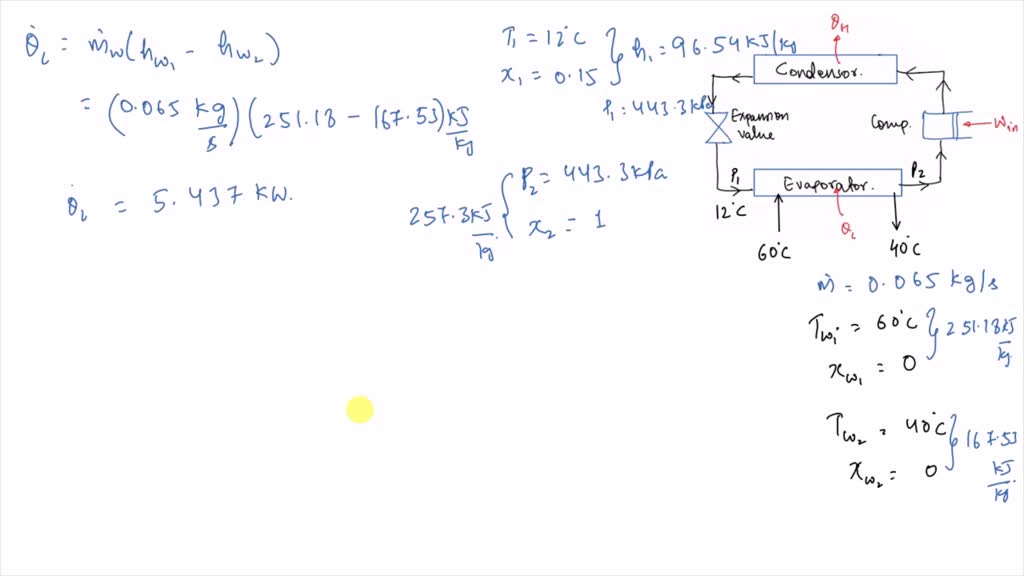 Q̇L = ṁw(hw1 - hw2)
= (0.065 kg/s)(251.18 - 167.53) kJ/kg
Q̇L = 5.437 kW.
T1 = 12°C } h1 = 96.54 kJ/kg
x1 = 0.15
P1: 443.3 kPa
257.3 kJ/kg. { P2 = 443.3 kPa
x2 = 1
Q̇H
Condensor.
Expansion
value
Comp.
Win
P1
Evaporator.
P2
12°C
QL
60°C
40°C
ṁ = 0.065 kg/s
Tw1 = 60°C } 251.18 kJ/kg
xw1 = 0
Tw2 = 40°C } 167.53 kJ/kg
xw2 = 0